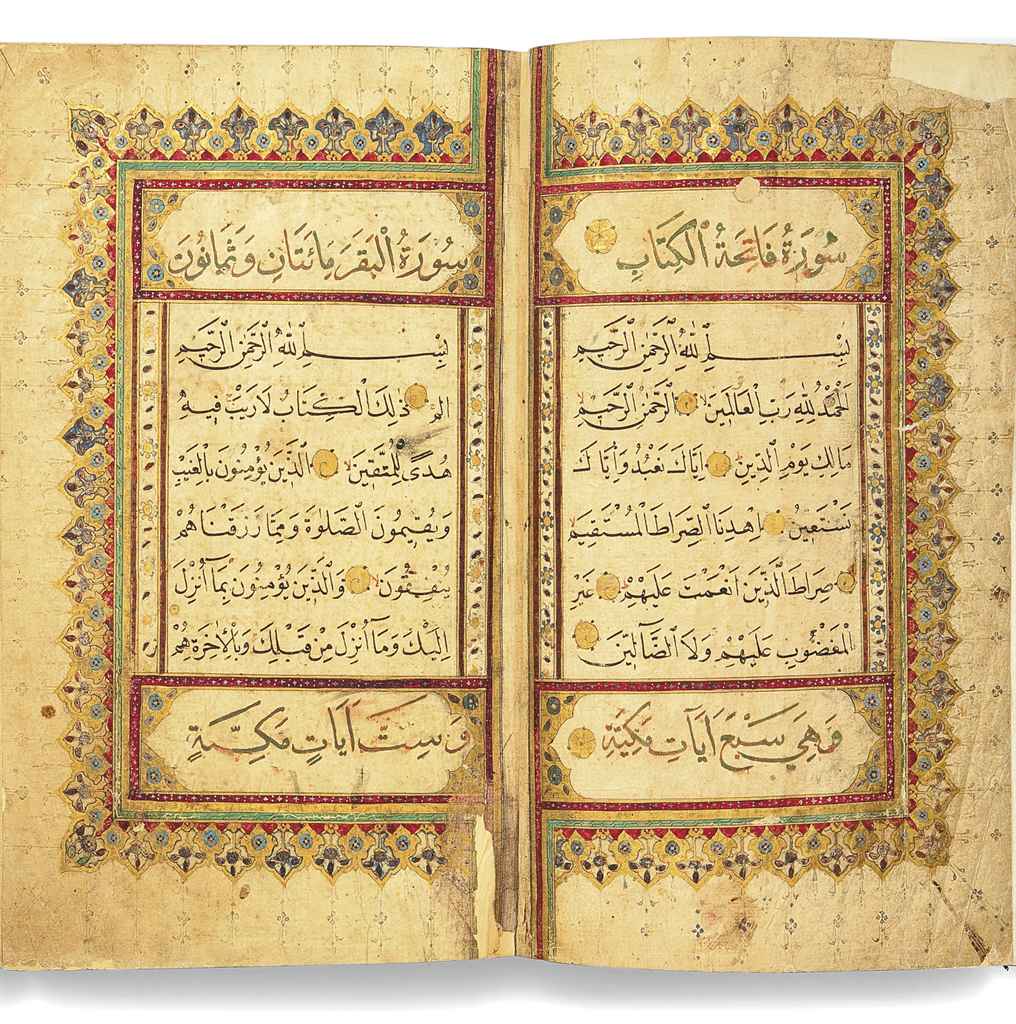 سُورَةُ فَاتِحَةُ الْكِتَابِ
بِسْمِ اللّٰهِ الرَّحْمٰنِ الرَّحِيمِ
اَلْحَمْدُ لِلّٰهِ رَبِّ الْعَالَمِينَ الرَّحْمٰنِ الرَّحِيمِ
مَالِكِ يَوْمِ الدِّينِ اِيَّاكَ نَعْبُدُ وَاِيَّاكَ
نَسْتَعِينُ اِهْدِنَا الصِّرَاطَ الْمُسْتَقِيمَ
صِرَاطَ الَّذِينَ اَنْعَمْتَ عَلَيْهِمْ غَيْرِ
الْمَغْضُوبِ عَلَيْهِمْ وَلَا الضَّالِّينَ
وَهِيَ سَبْعَ اٰيَاتٍ مَكِّيَّةٍ
سُورَةُ الْبَقَرَ مِائَتَانِ وَثَمَانُونَ
بِسْمِ اللّٰهِ الرَّحْمٰنِ الرَّحِيمِ
الم ذٰلِكَ الْكِتَابُ لَا رَيْبَ فِيهِ
هُدًى لِلْمُتَّقِينَ الَّذِينَ يُؤْمِنُونَ بِالْغَيْبِ
وَيُقِيمُونَ الصَّلٰوةَ وَمِمَّا رَزَقْنَاهُمْ
يُنْفِقُونَ وَالَّذِينَ يُؤْمِنُونَ بِمَٓا اُنْزِلَ
اِلَيْكَ وَمَٓا اُنْزِلَ مِنْ قَبْلِكَ وَبِالْاٰخِرَةِ هُمْ
وَسِتَّ اٰيَاتٍ مَكِّيَّةٍ